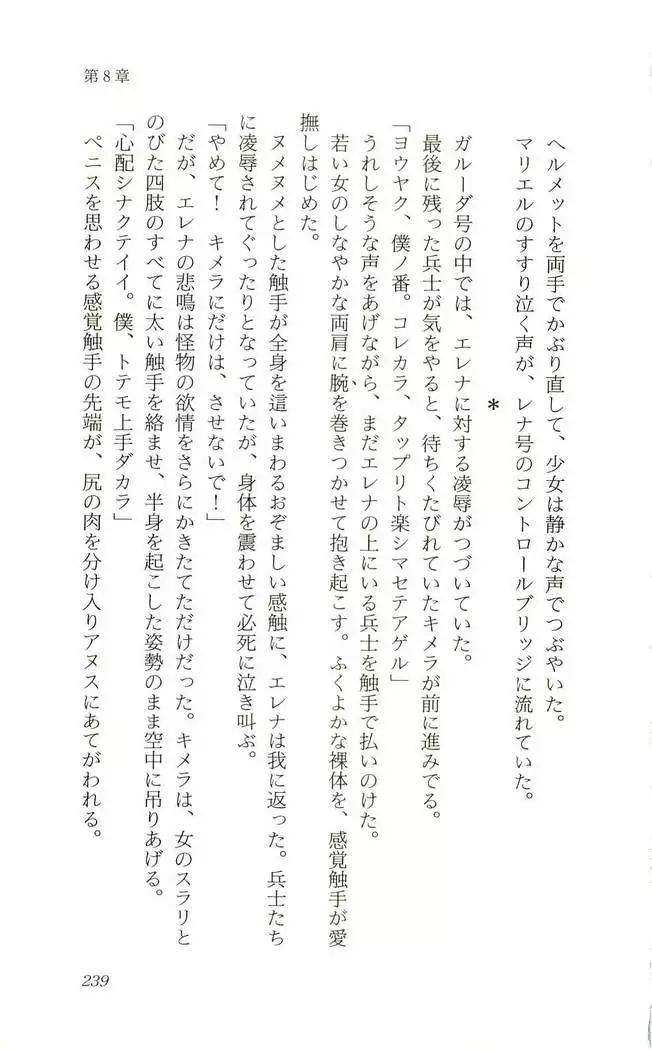 第8章
ヘルメットを両手でかぶり直して、少女は静かな声でつぶやいた。
マリエルのすすり泣く声が、レナ号のコントロールブリッジに流れていた。
*
ガルーダ号の中では、エレナに対する凌辱がつづいていた。
最後に残った兵士が気をやると、待ちくたびれていたキメラが前に進みでる。
「ヨウヤク、僕ノ番。コレカラ、タップリト楽シマセテアゲル」
うれしそうな声をあげながら、まだエレナの上にいる兵士を触手で払いのけた。
若い女のしなやかな両肩に腕を巻きつかせて抱き起こす。ふくよかな裸体を、感覚触手が愛
撫しはじめた。
ヌメヌメとした触手が全身を這いまわるおぞましい感触に、エレナは我に返った。兵士たち
に凌辱されてぐったりとなっていたが、身体を震わせて必死に泣き叫ぶ。
「やめて！　キメラにだけは、させないで！」
だが、エレナの悲鳴は怪物の欲情をさらにかきたてただけだった。キメラは、女のスラリと
のびた四肢のすべてに太い触手を絡ませ、半身を起こした姿勢のまま空中に吊りあげる。
「心配シナクテイイ。僕、トテモ上手ダカラ」
ペニスを思わせる感覚触手の先端が、尻の肉を分け入りアヌスにあてがわれる。
239